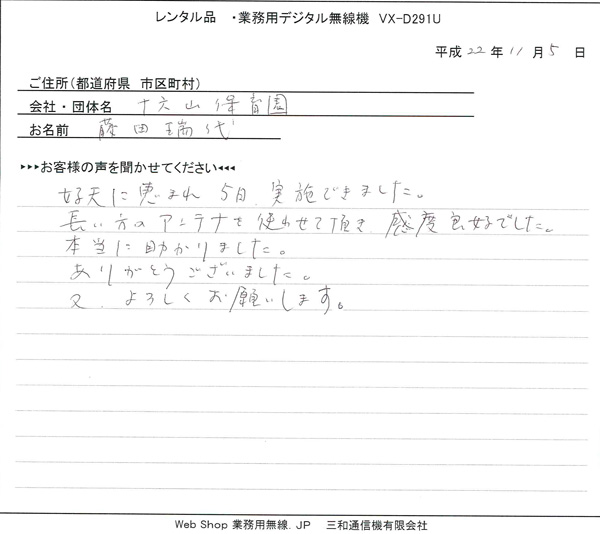 レンタル品 ・業務用デジタル無線機 VX-D291U
平成 22 年 11 月 5 日
ご住所(都道府県 市区町村)
会社・団体名 十六山保育園
お名前 藤田瑞代
▸▸▸お客様の声を聞かせてください◂◂◂
好天に恵まれ 5日 実施できました。
長い方のアンテナを使わせて頂き 感度良好でした。
本当に助かりました。
ありがとうございました。
又、よろしくお願いします。
Web Shop 業務用無線.JP 三和通信機有限会社